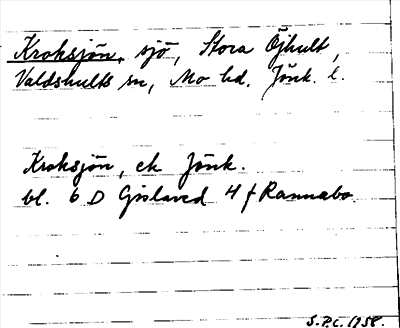 Kroksjön, sjö, Stora Öjhult,
Valdshults sn, Mo hd. Jönk. l.
Kroksjön, ek Jönk.
bl. 6 D Gislaved 4 f Rannebo.
S.P.C. 1958.